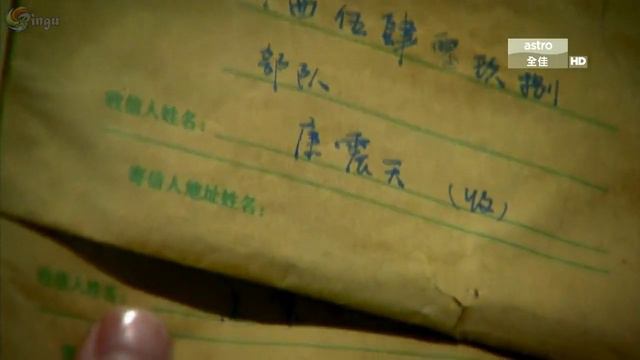 Pingu
astro
全佳 HD
西伍肆零玖捌
部队
收信人姓名：
康震天（收）
寄信人地址姓名：
收信人姓名：